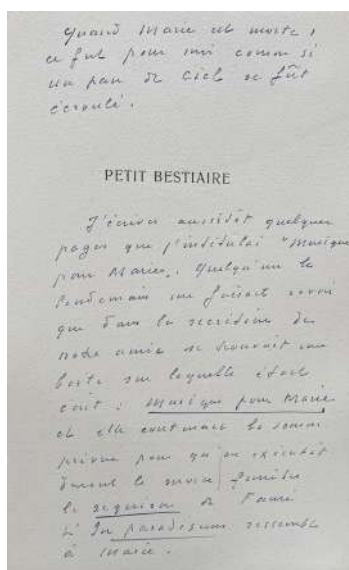 Quand Marie est morte,
ce fut pour moi comme si
un pan de ciel se fût
écroulé.
PETIT BESTIAIRE
J'écrivis aussitôt quelques
pages que j'intitulai "Musique
pour Marie". Quelqu'un le
lendemain me faisait savoir
que dans le secrétaire de
notre amie se trouvait une
boîte sur laquelle était
écrit : Musique pour Marie
et elle contenait la somme
prévue pour qu'on exécutât
durant le service funèbre
le requiem de Fauré
L'In paradisum ressemble
à Marie.